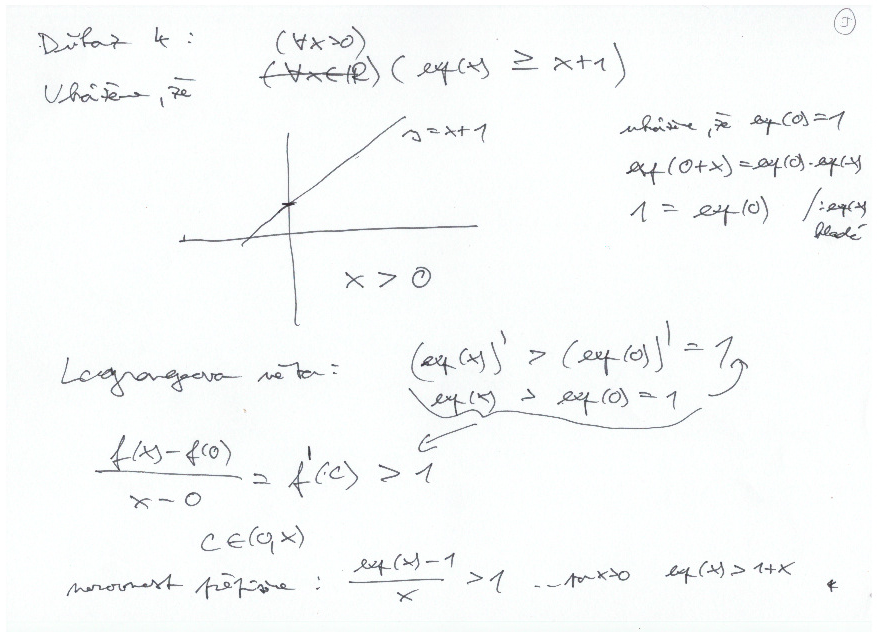 5
Důkaz 4:
(∀x>0)
Ukážeme, že (∀x∈ℝ) (exp(x) ≥ x+1)
y=x+1
ukážeme, že exp(0)=1
exp(0+x)=exp(0)·exp(x)
1 = exp(0) /:exp(x)
kladé
x > 0
Lagrangeova věta: (exp(x))' > (exp(0))' = 1
exp(x) > exp(0) = 1
f(x)-f(0) / x-0 = f'(c) > 1
c∈(0,x)
nerovnost přepíšeme: exp(x)-1 / x > 1 ... x>0 exp(x)>1+x